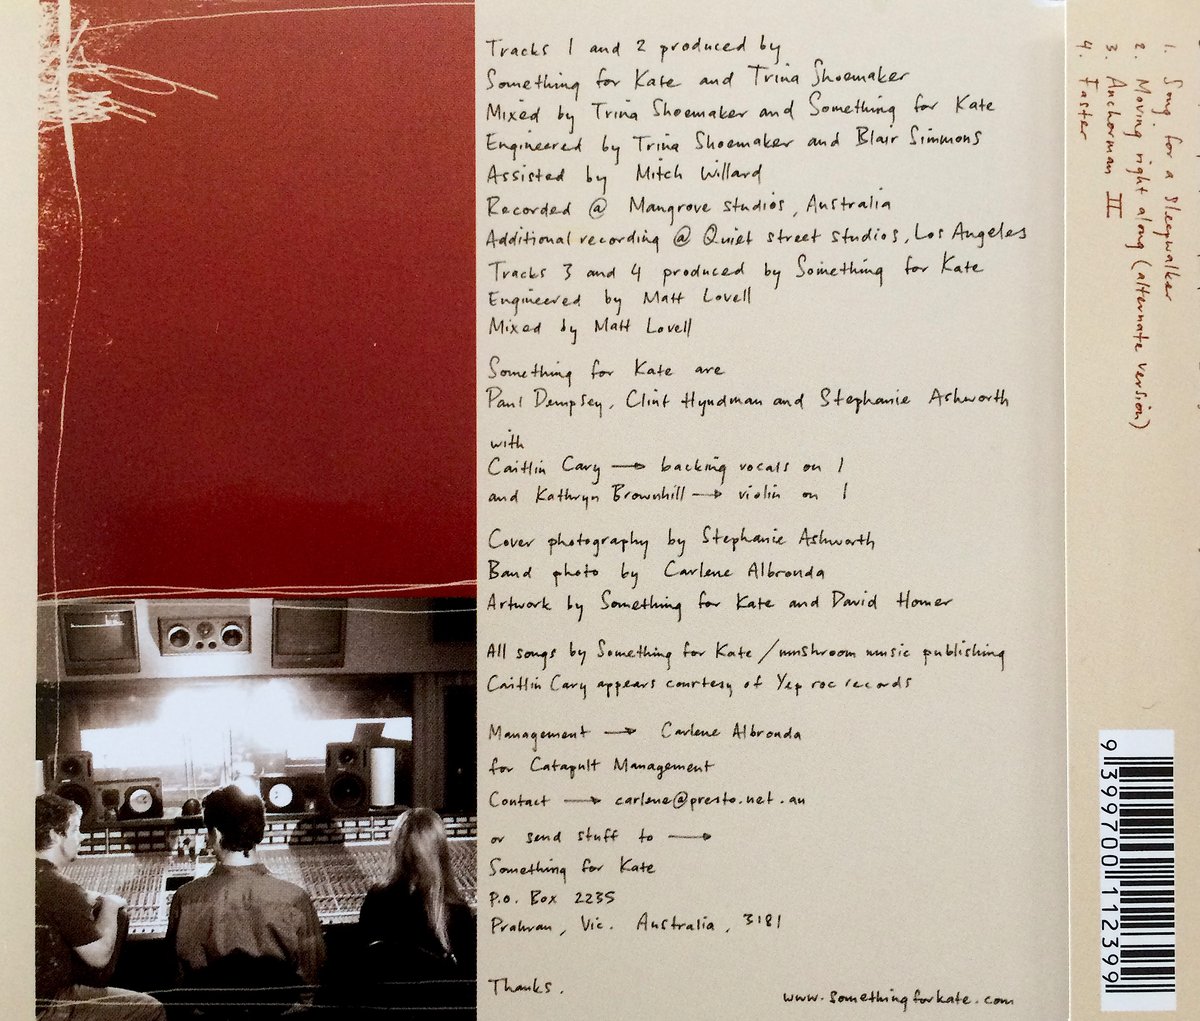 Tracks 1 and 2 produced by
Something for Kate and Trina Shoemaker
Mixed by Trina Shoemaker and Something for Kate
Engineered by Trina Shoemaker and Blair Simmons
Assisted by Mitch Willard
Recorded @ Mangrove studios, Australia
Additional recording @ Quiet street studios, Los Angeles
Tracks 3 and 4 produced by Something for Kate
Engineered by Matt Lovell
Mixed by Matt Lovell
Something for Kate are
Paul Dempsey, Clint Hyndman and Stephanie Ashworth
with
Caitlin Cary → backing vocals on 1
and Kathryn Brownhill → violin on 1
Cover photography by Stephanie Ashworth
Band photo by Carlene Albronda
Artwork by Something for Kate and David Homer
All songs by Something for Kate / mushroom music publishing
Caitlin Cary appears courtesy of Yep roc records
Management → Carlene Albronda
for Catapult Management
Contact → carlene@presto.net.au
or send stuff to →
Something for Kate
P.O. Box 2235
Prahran, Vic. Australia, 3181
Thanks.
www.somethingforkate.com
1. Song for a Sleepwalker
2. Moving right along (alternate version)
3. Anchorman II
4. Faster
9 399700 112399